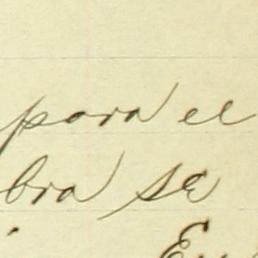 para el
bra se